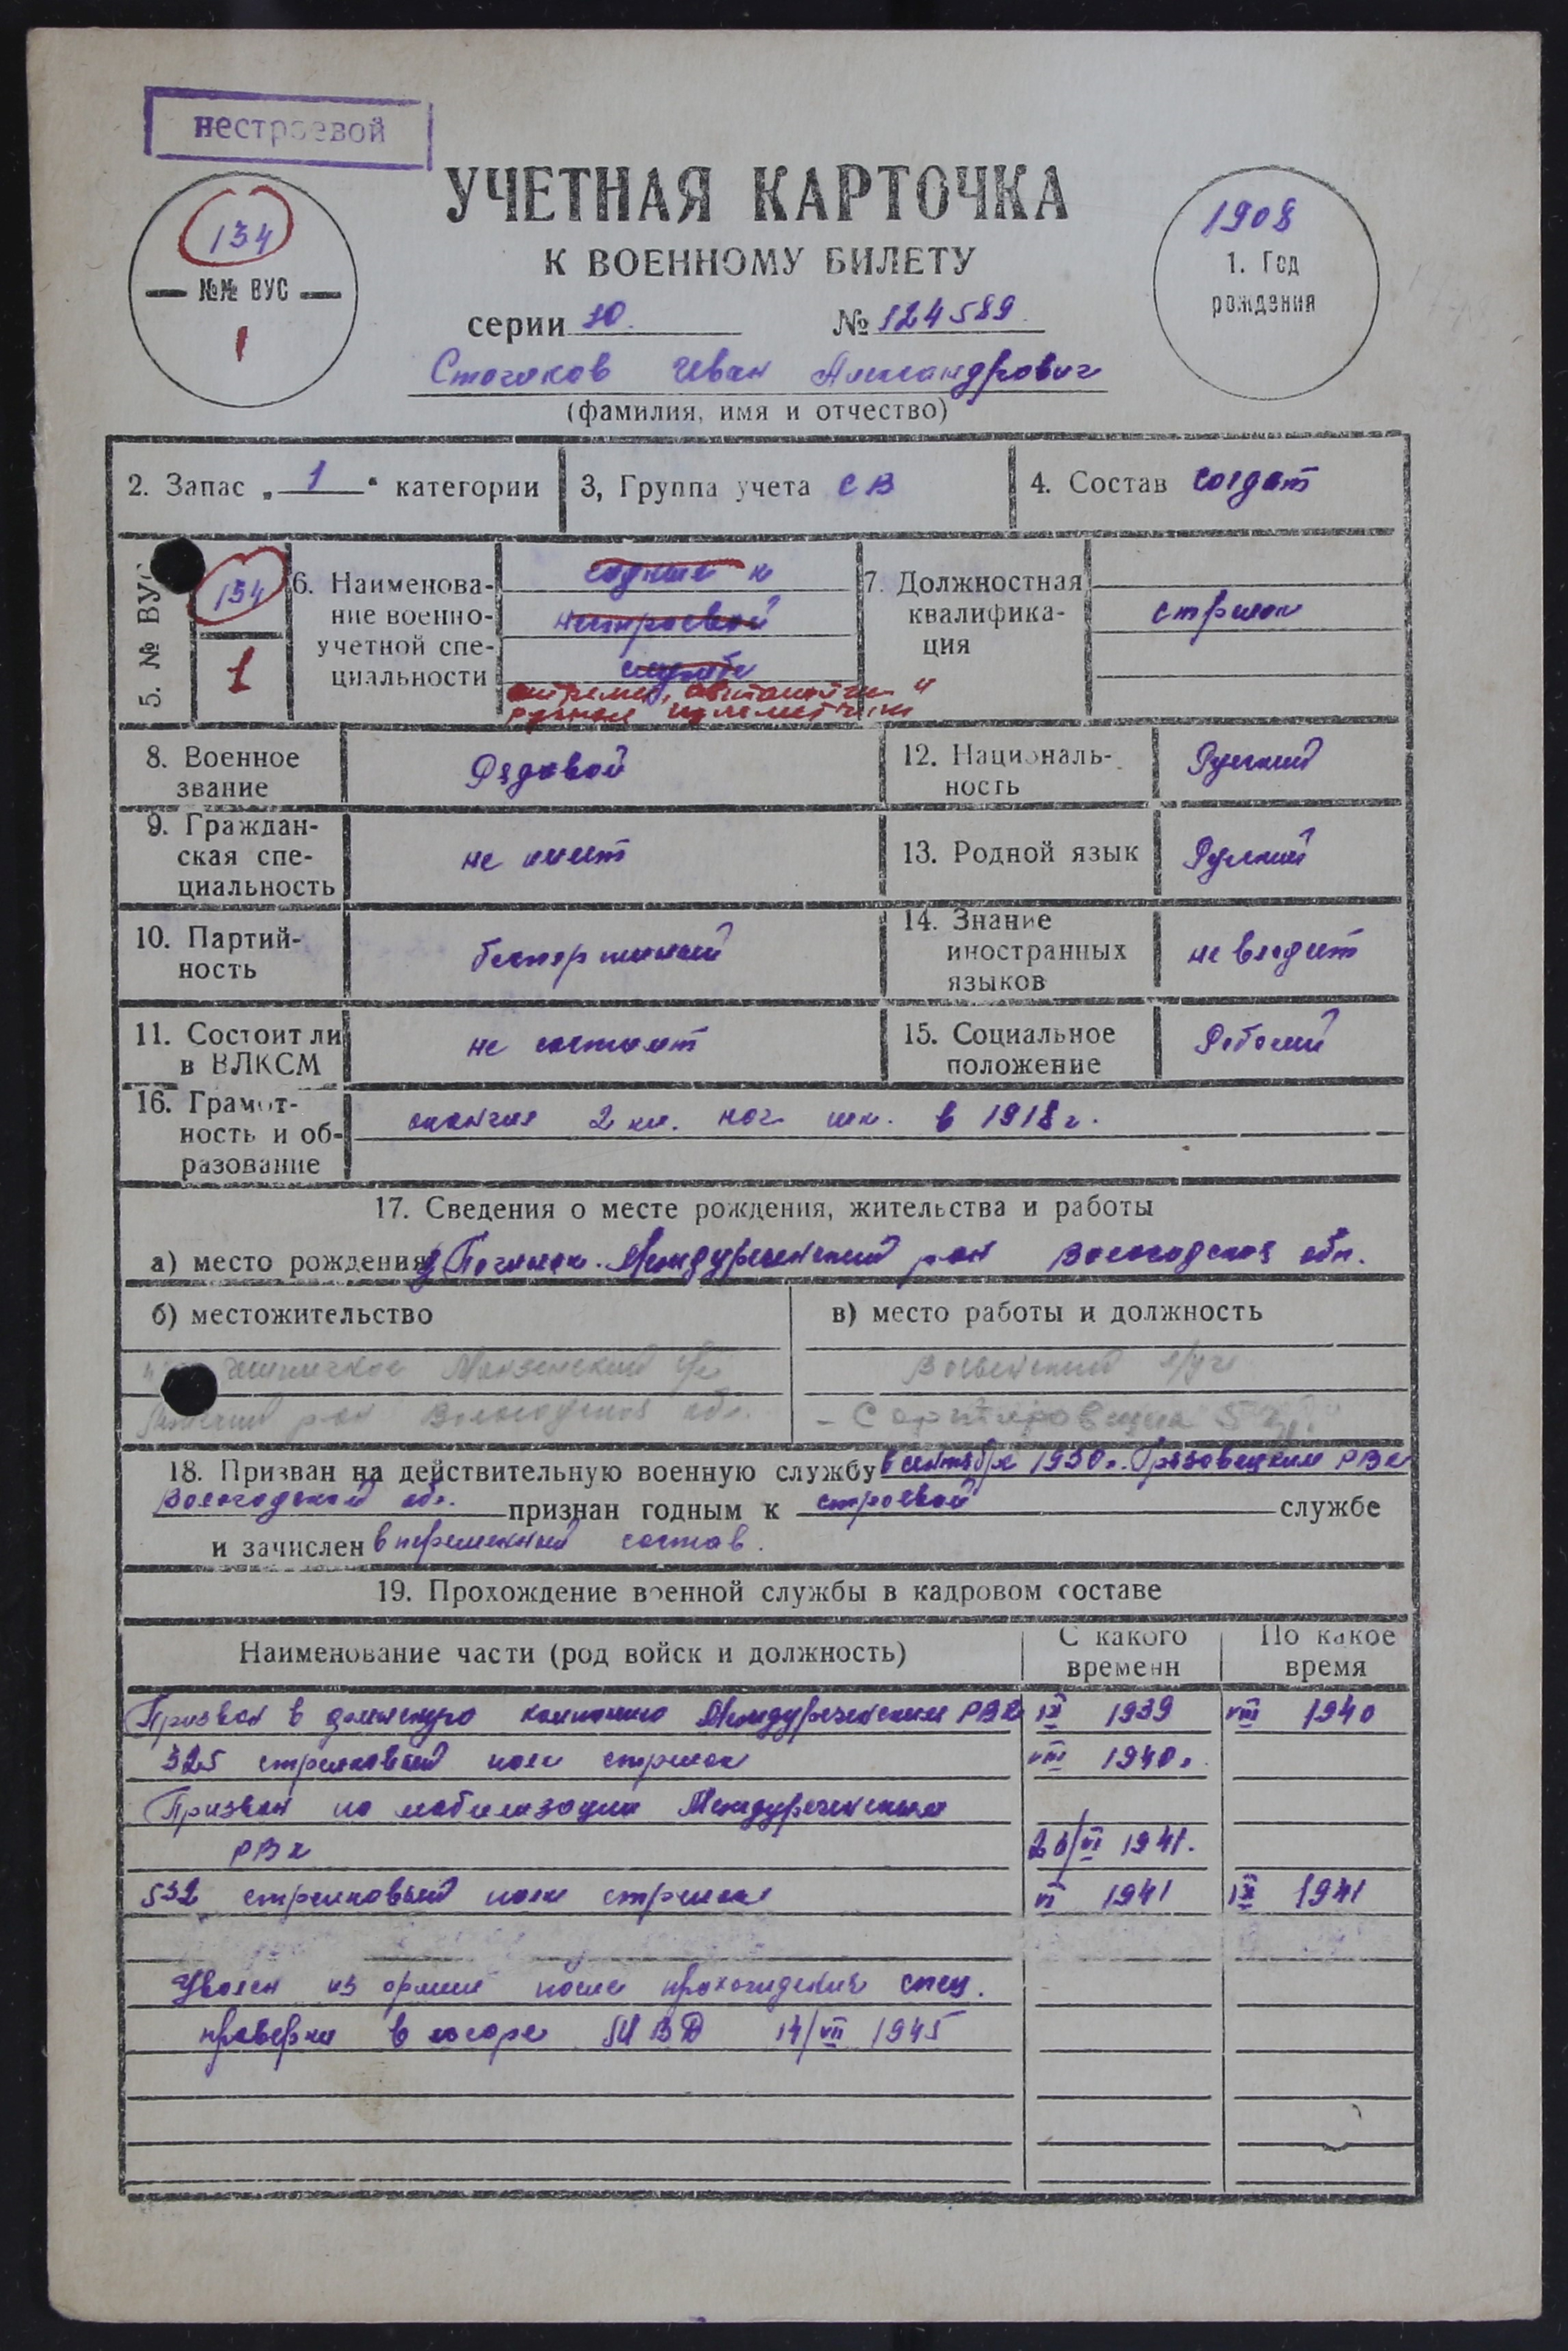 нестроевой
УЧЕТНАЯ КАРТОЧКА
К ВОЕННОМУ БИЛЕТУ
134
№№ ВУС
1
1908
1. Год
рождения
серии 10. № 124589
Иван Александрович
(фамилия, имя и отчество)
2. Запас „ 1 “ категории
3, Группа учета СВ
4. Состав солдат
5. № ВУС
134
1
6. Наименова-
ние военно-
учетной спе-
циальности
годный к
нестроевой
службе
стрелки, автоматчики
ручные пулеметчики
7. Должностная
квалифика-
ция
стрелок
8. Военное
звание
Рядовой
12. Националь-
ность
Русский
9. Граждан-
ская спе-
циальность
не имеет
13. Родной язык
Русский
10. Партий-
ность
беспартийный
14. Знание
иностранных
языков
не владеет
11. Состоит ли
в ВЛКСМ
не состоит
15. Социальное
положение
Рабочий
16. Грамот-
ность и об-
разование
окончил 2 кл. нач. шк. в 1918 г.
17. Сведения о месте рождения, жительства и работы
а) место рождения д Починок. Междуреченский р-он Вологодская обл.
б) местожительство
в) место работы и должность
р-он Вологодская обл.
- Сортировщица
18. Призван на действительную военную службу в сентябре 1930 г. Грязовецким РВК
Вологодской обл. признан годным к строевой службе
и зачислен в переменный состав.
19. Прохождение военной службы в кадровом составе
Наименование части (род войск и должность)
С какого
времени
По какое
время
Призван в финскую компанию Междуреченским РВК IX 1939 VIII 1940
325 стрелковый полк стрелок VIII 1940 г.
Призван по мобилизации Междуреченским
РВК 26/VI 1941.
532 стрелковый полк стрелок VI 1941 IX 1941
Уволен из армии после прохождения спец.
проверки в лагере МВД 14/VII 1945